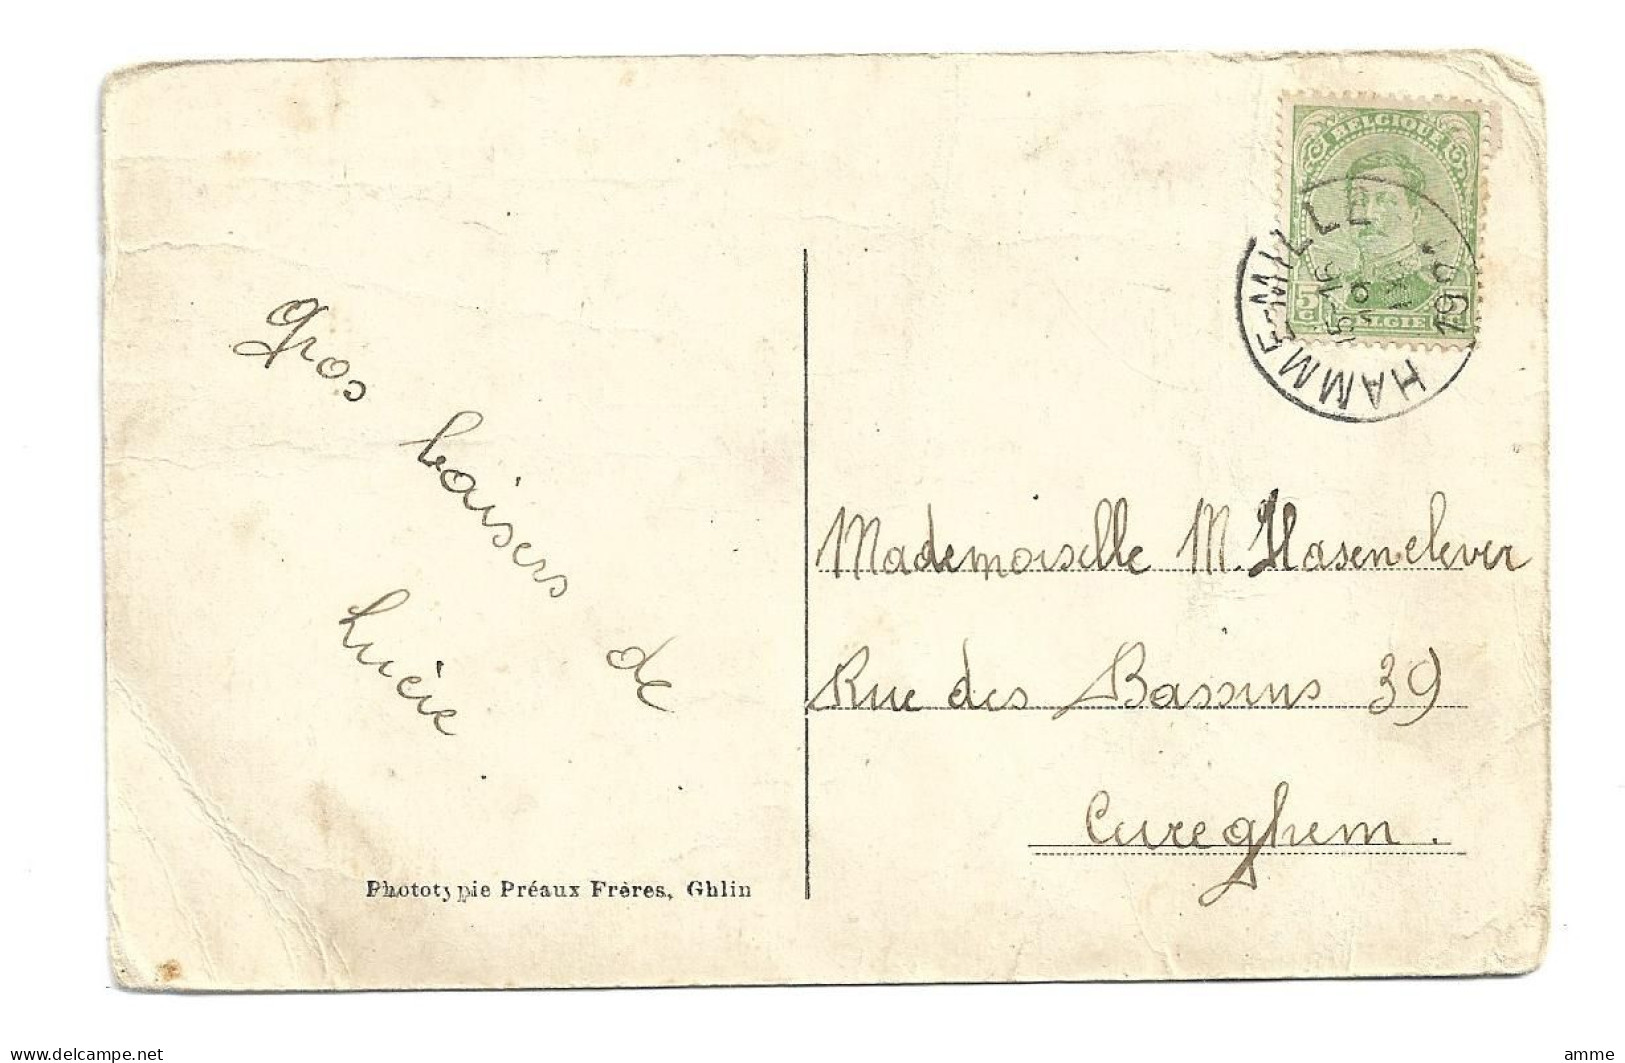 BELGIQUE
5c
BELGIE
HAMME-MILLE
15-16
19
Gros
baisers
de
Lucie
Mademoiselle M. Hasenclever
Rue des Bassins 39
Cureghem.
Phototypie Préaux Frères, Ghlin
delcampe.net
amme